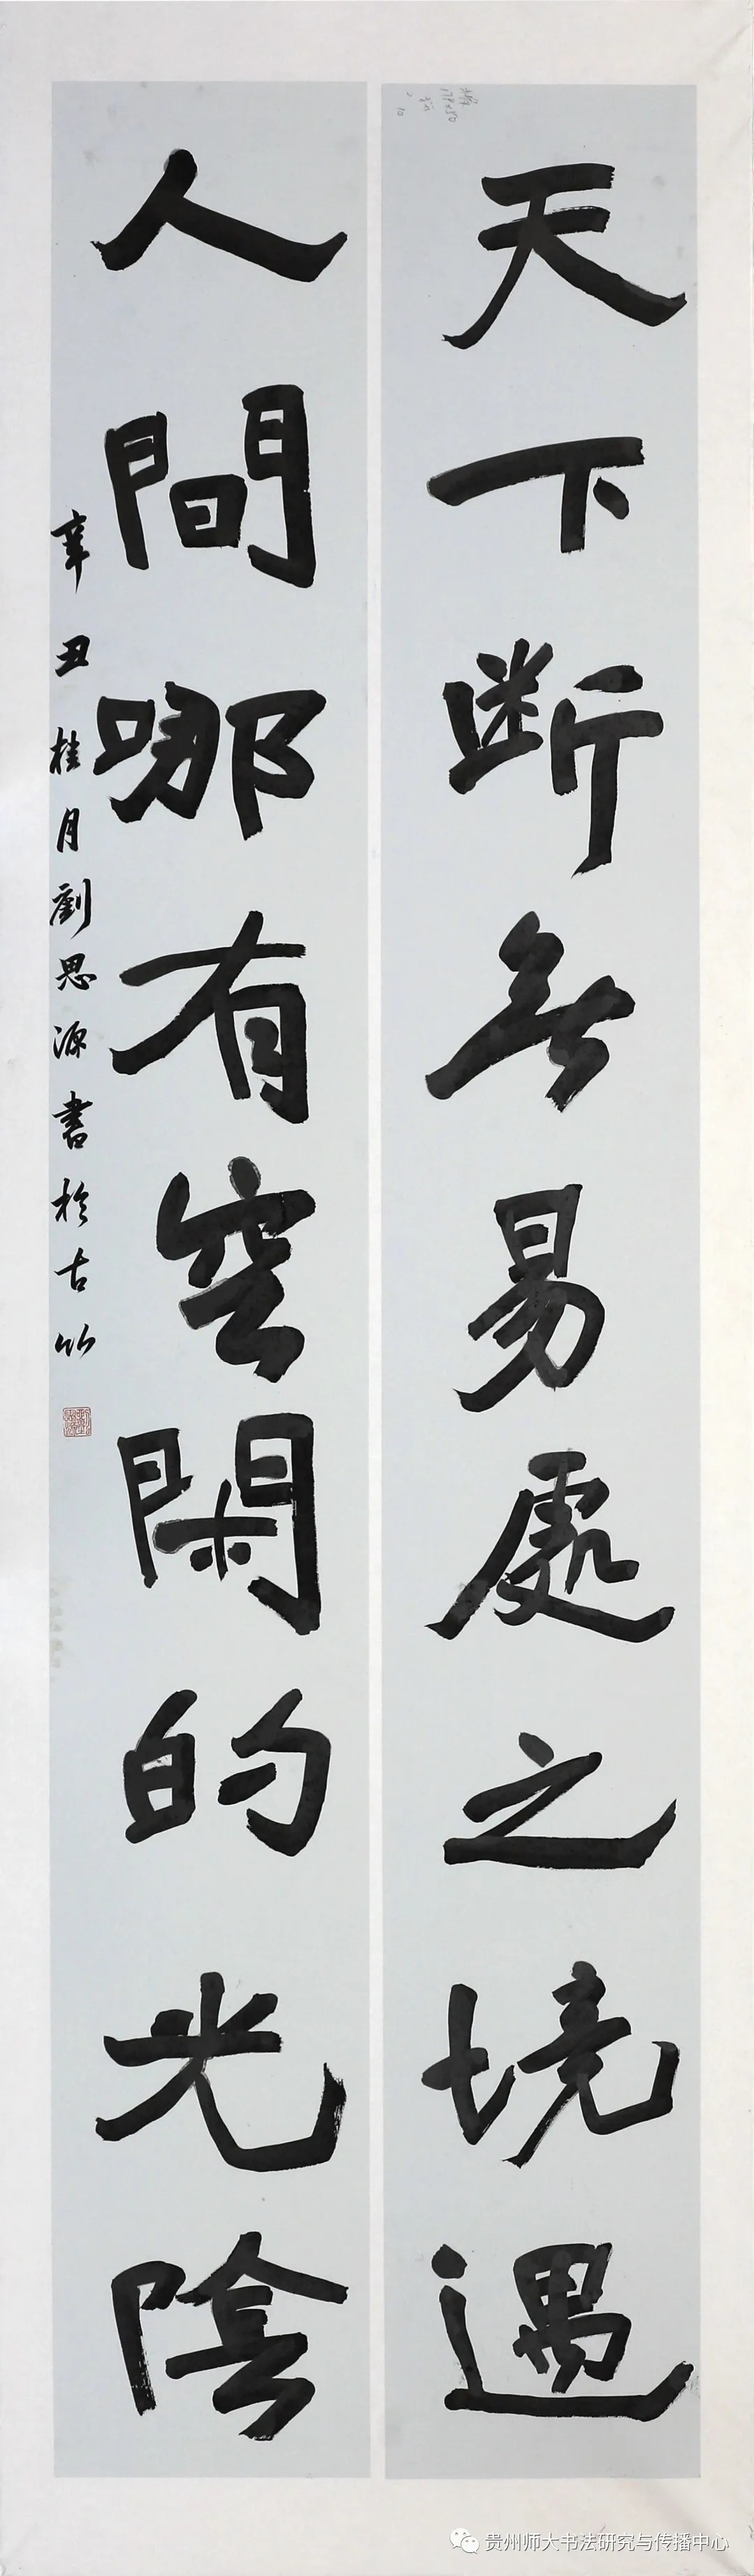 天下断无易處之境遇
人間哪有空閑的光陰
辛丑桂月劉思源書於古竹
贵州师大书法研究与传播中心